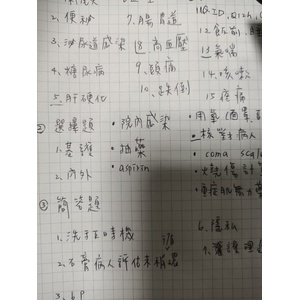 2. 便秘 7. 腸胃道 11. QID, Q12h,
3. 泌尿道感染 8. 高血壓 12. 飯前,
4. 糖尿病 9. 頭痛 13. 氣喘
5. 肝硬化 10. 跌倒 14. 咳嗽
15. 疼痛
② 選擇題 • 院內感染 • 用氧(
1. 基護 • 抽藥 • 核對病人
2. 內外 • aspirin • coma scale
• 燒傷計算
③ 簡答題
1. 洗手五時機 6. 隱私
2. 石膏病人評估末梢 7. 護理
3. BP